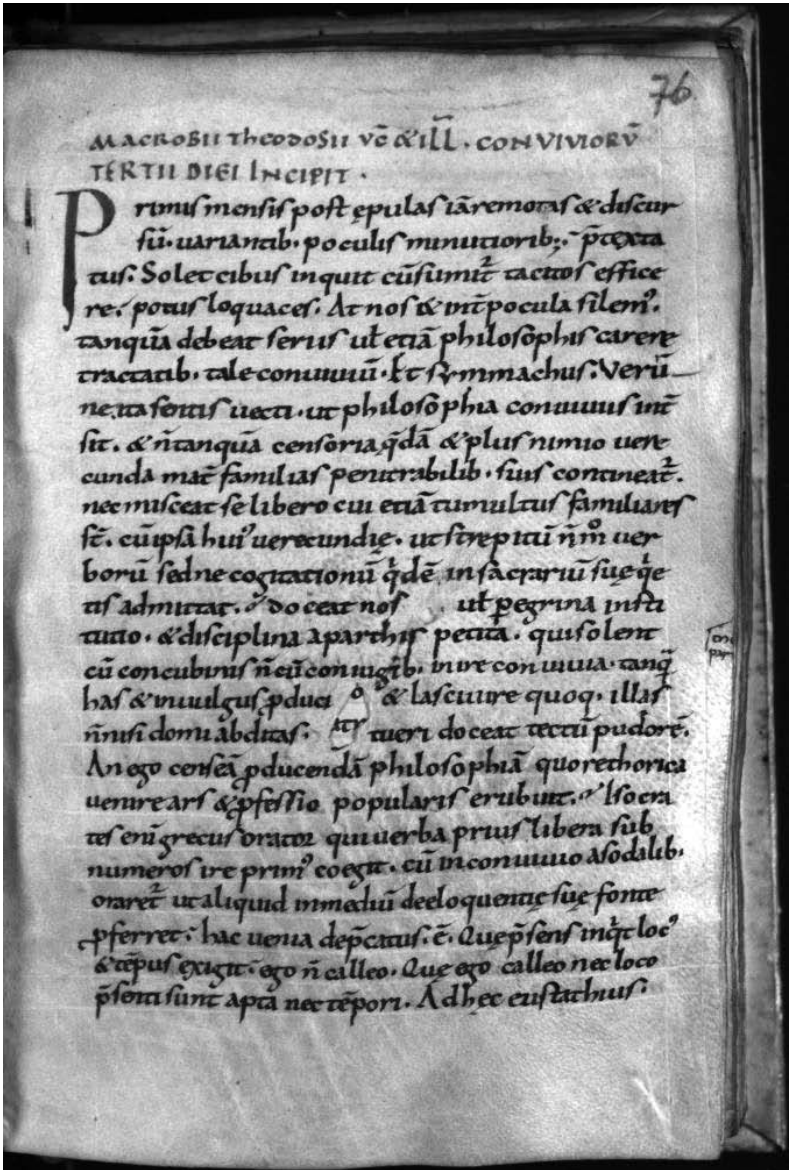 76
MACROBII TheODOSII VC̄ & ILL̄. CONVIVIORV̄
TERTII DIEI INCIPIT.
Primis mensis post ępulas iā remotas & discur
sū. uariantib. poculis minutiorib; p̄texta
tus. Solet cibus inquit cū sumit̄ tacitos effice
re. potus loquaces. At nos & int̄ pocula silemꝰ.
tanquā debeat seriis ut̄ etiā philosophis carere
tractatib. tale conuiuiū. Et symmachus. Verū
ne ita sentis uecti. ut philosophia conuiuiis int̄
sit. & n̄ tanquā censoria q̄dā & plus nimio uere
cunda mat̄ familias penitrabilib. suis contineat̄.
nec misceat se libero cui etiā tumultus familiares
st̄. cū ipsa huiꝰ uerecundię. ut strepitū n̄ m̊ uer
borū sed ne cogitationū q̄dē in sacrariū suę q̄e
tis admittat. doceat nos ut̄ pegrina insti
tutio. & disciplina a parthis petita. qui solent
cū concubinis n̄ cū coniugib. inire conuiuia. tanq̄
has & in uulgus ꝓduci & lasciuire quoq. illas
n̄ nisi domi abditas. tueri doceat tectū pudorē.
An ego censeā ꝓducendā philosophiā quo rethorica
uenire ars & ꝓfessio popularis erubuit. Isocra
tes eni grecus orator qui uerba prius libera sub
numeros ire primꝰ coegit. cū in conuiuio a sodalib.
oraret̄ ut aliquid in mediū de eloquentię suę fonte
ꝓferret. hac uenia dep̄catus. ē. Quę p̄sens inq̄t locꝰ
& tēpus exigit. ego n̄ calleo. Quę ego calleo nec loco
p̄senti sunt apta nec tēpori. Ad hęc eustathius.